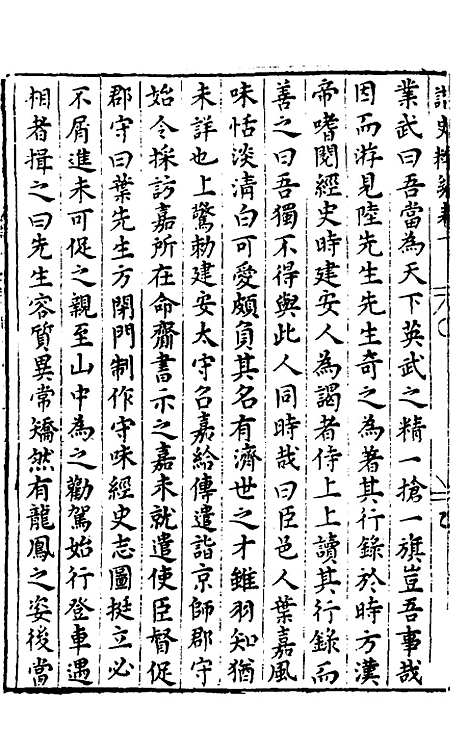 業武曰吾當為天下英武之精一搶一旗豈吾事哉
因而游見陸先生先生奇之為著其行錄於時方漢
帝嗜閱經史時建安人為謁者侍上上讀其行錄而
善之曰吾獨不得與此人同時哉曰臣邑人葉嘉風
味恬淡清白可愛頗負其名有濟世之才雖羽知猶
未詳也上驚勅建安太守名嘉給傳遣詣京師郡守
始令採訪嘉所在命齎書示之嘉未就遣使臣督促
郡守曰葉先生方閉門制作守味經史志圖挺立必
不屑進未可促之親至山中為之勸駕始行登車遇
相者揖之曰先生容質異常矯然有龍鳳之姿後當